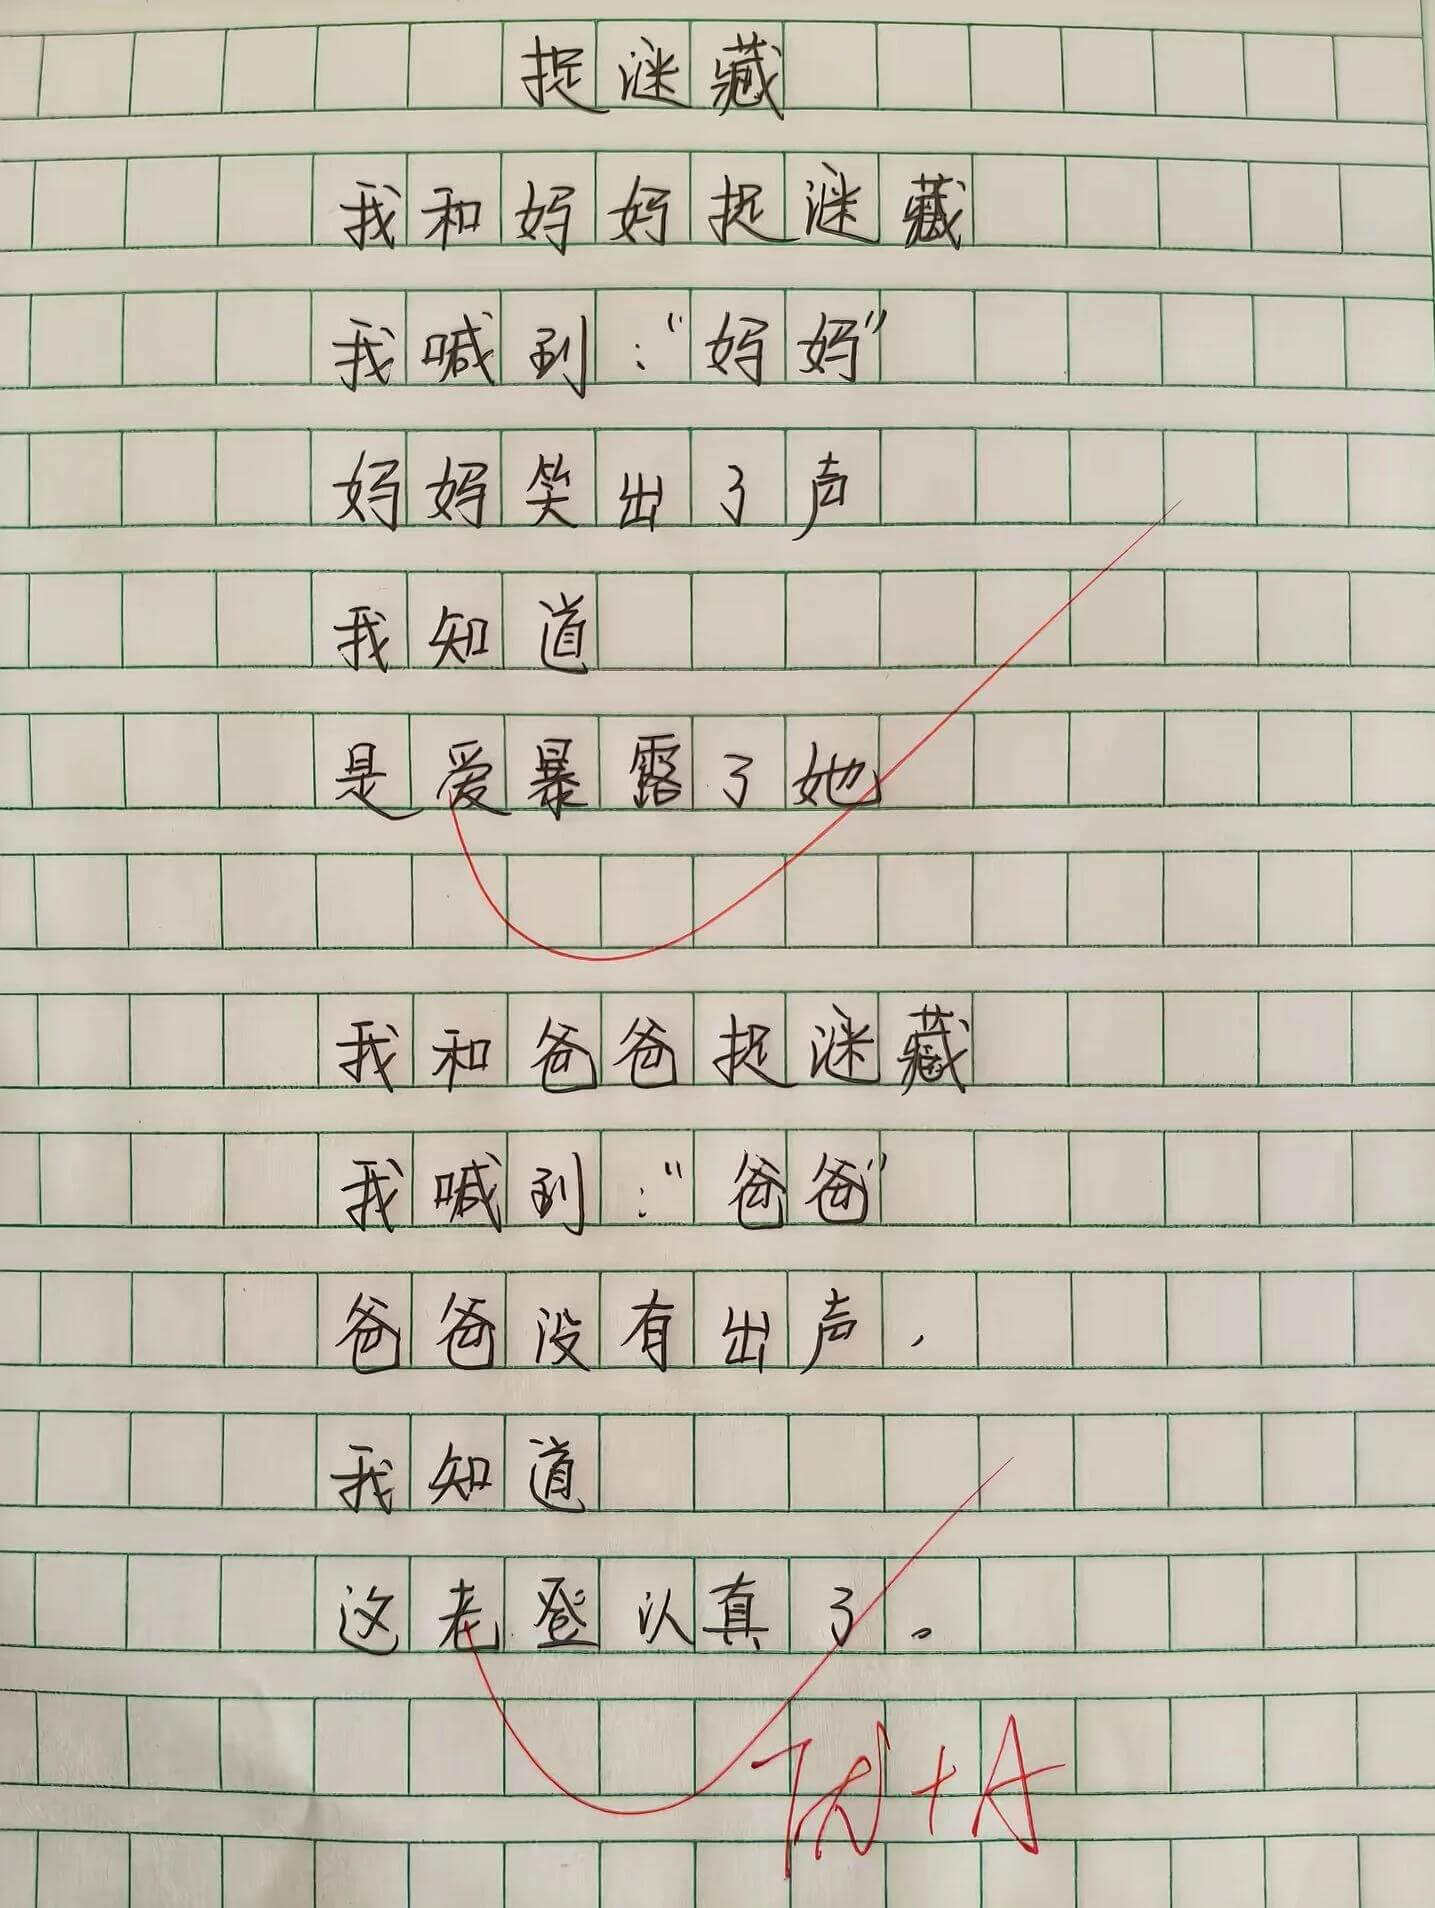 捉迷藏
我和妈妈捉迷藏
我喊到：“妈妈”
妈妈笑出了声
我知道
是爱暴露了她
我和爸爸捉迷藏
我喊到：“爸爸”
爸爸没有出声，
我知道
这老登认真了。